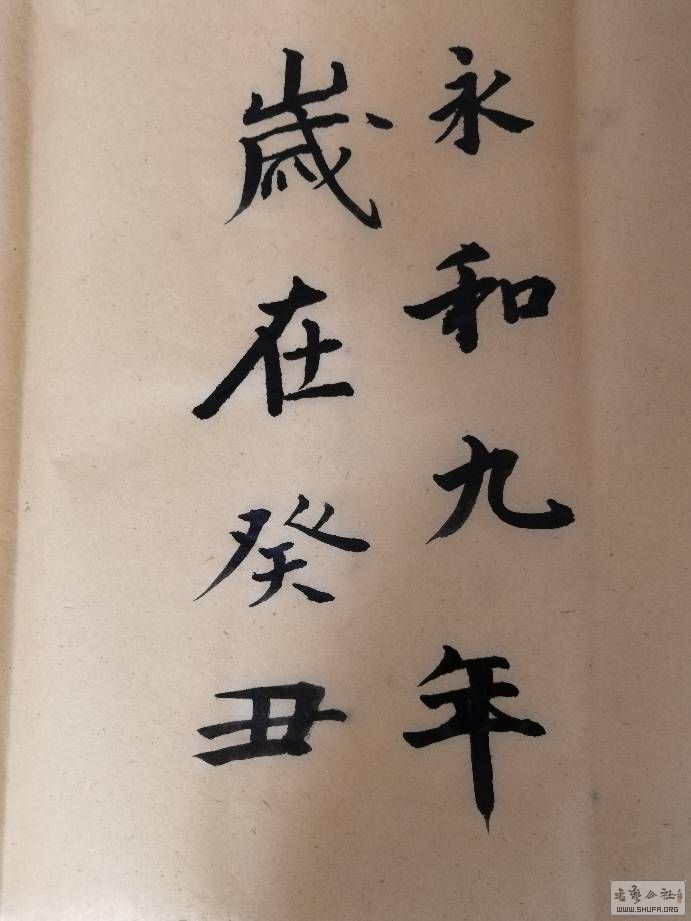 永和九年
歲在癸丑
书艺公社
WWW.SHUFA.ORG